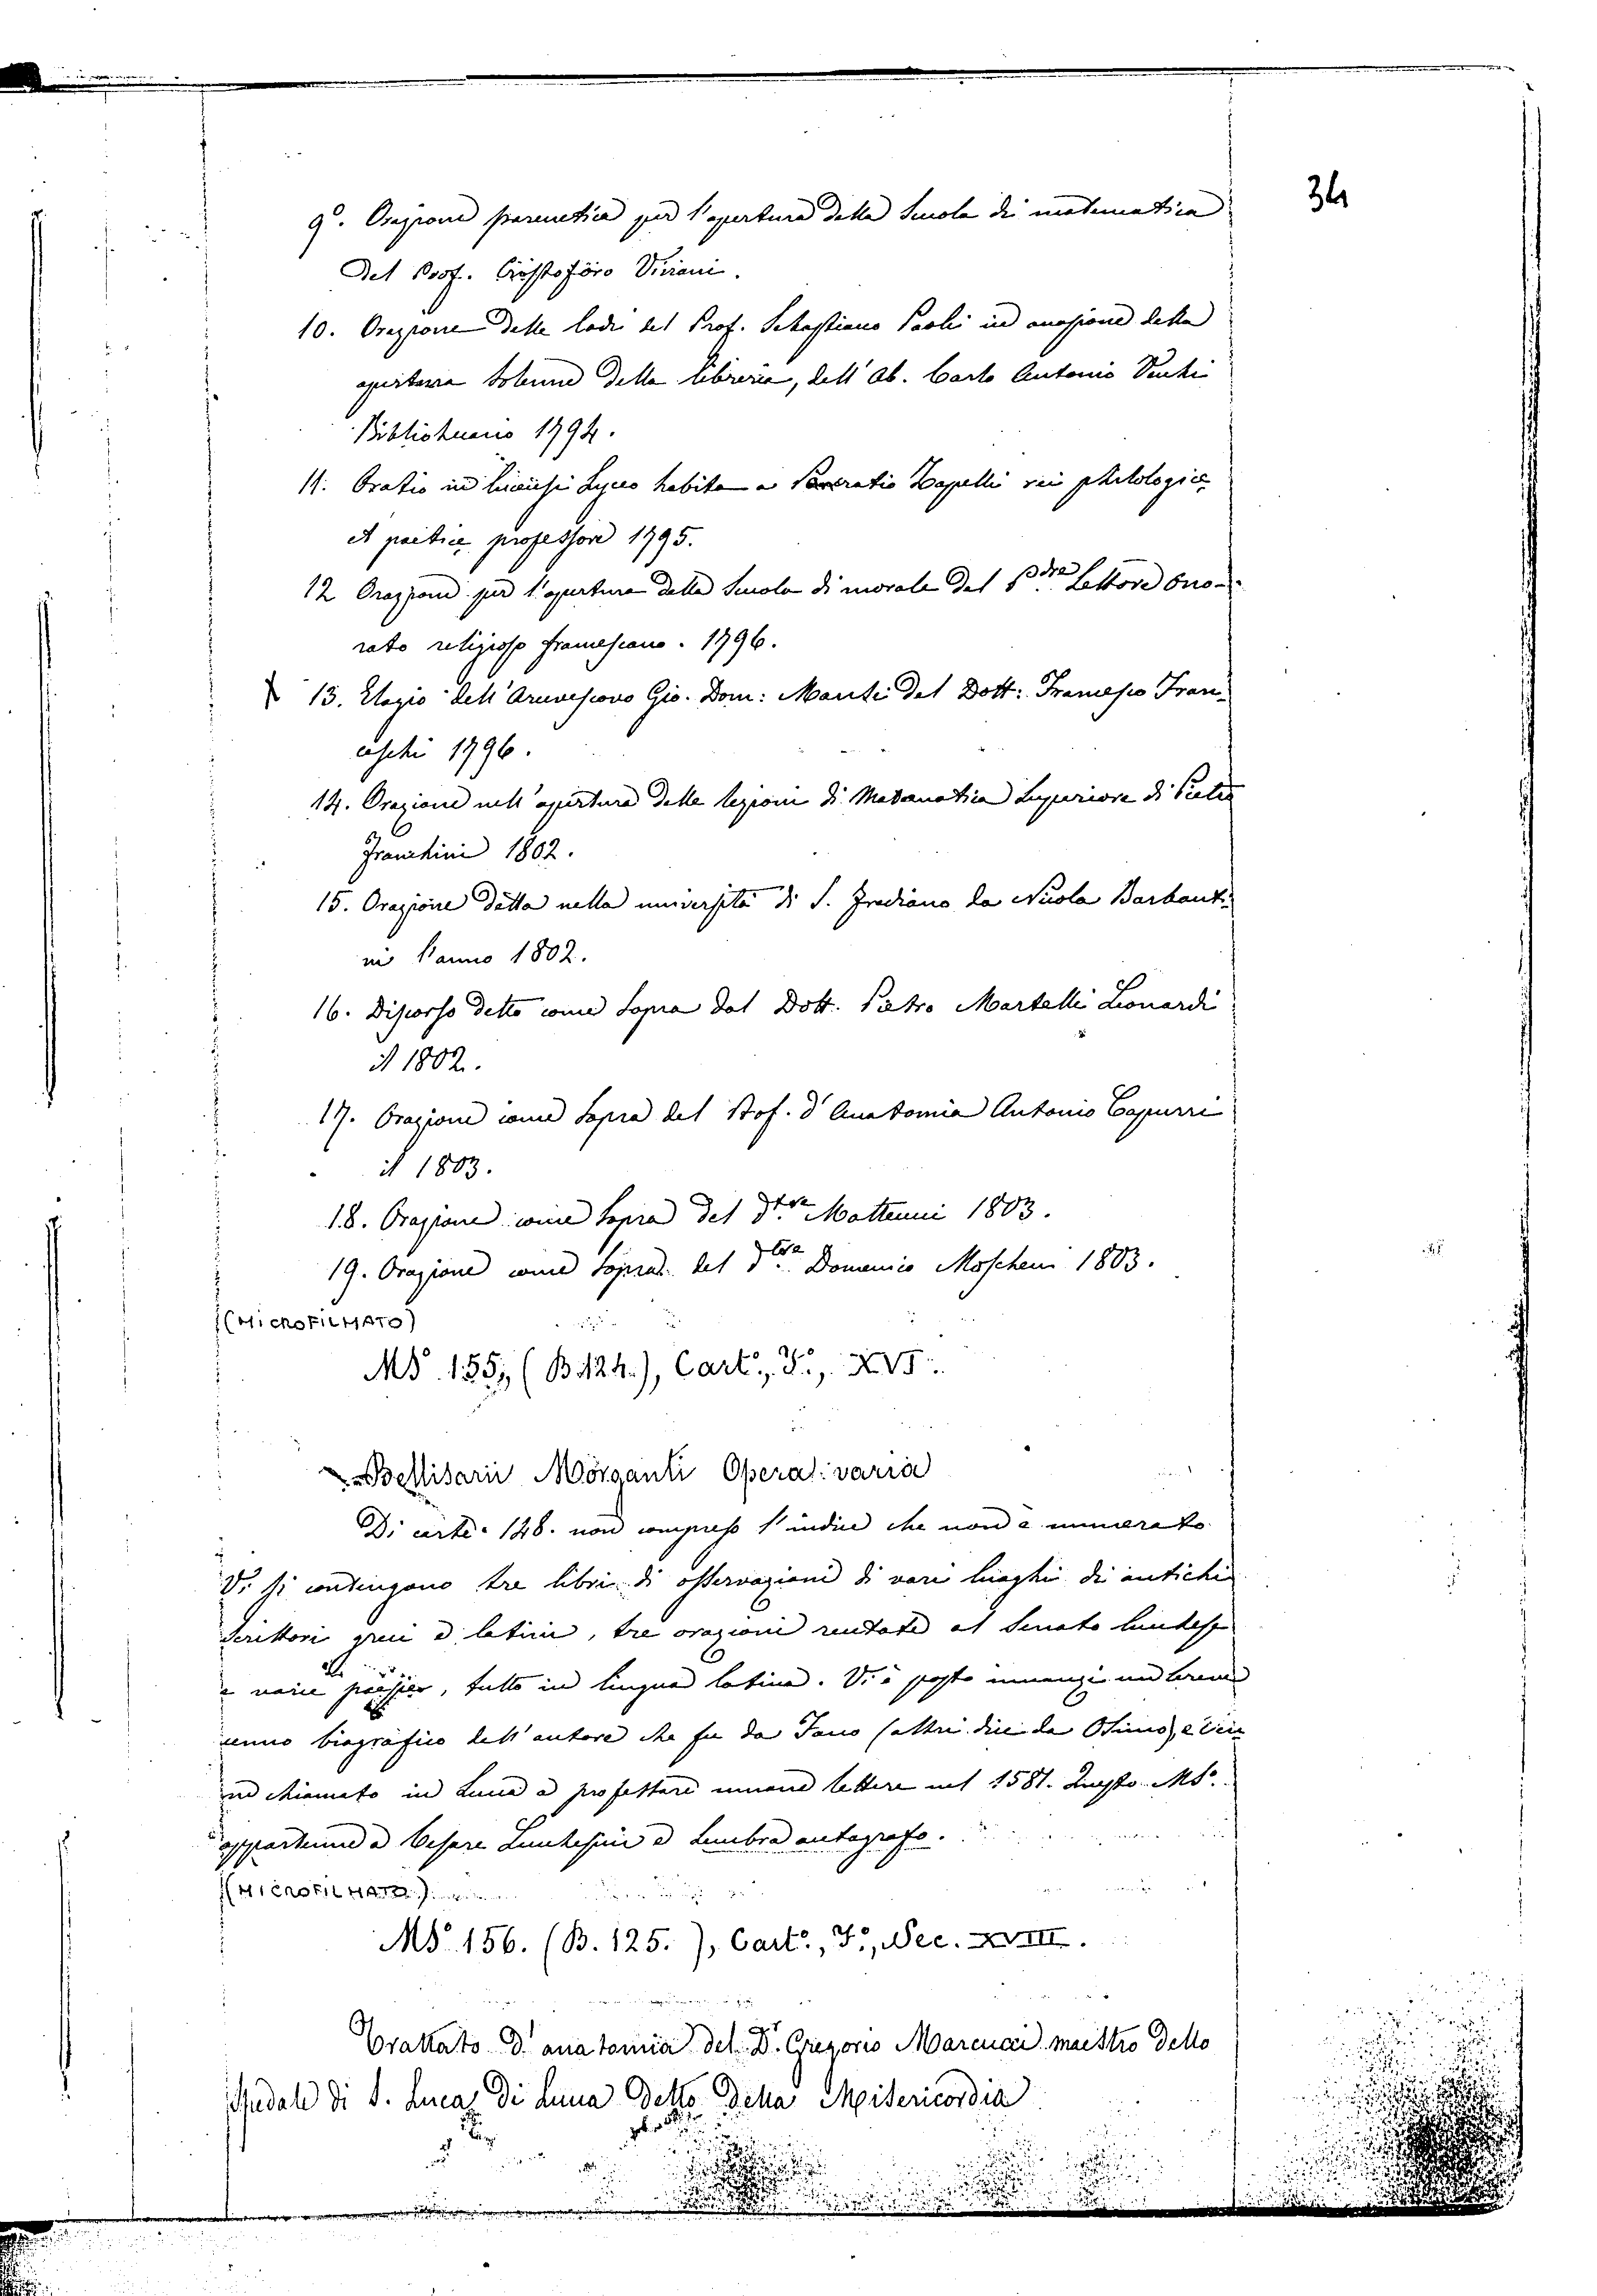 34
9º. Orazione parenetica per l'apertura della Scuola di matematica
del Prof. Cristoforo Viviani.
10. Orazione delle lodi del Prof. Sebastiano Paoli in occasione della
apertura solenne della libreria, dell'Ab. Carlo Antonio
Bibliotecario 1794.
11. Oratio in Lucensi Lyceo habita a Pancratio Zapelli rei philologice
et poetice professore 1795.
12 Orazione per l'apertura della Scuola di morale del Lettore Ono-
rato religioso francescano. 1796.
13. Elogio dell'Arcivescovo Gio. Dom: Mansi del Dott: Francesco Fran
ceschi 1796.
14. Orazione nell'apertura delle lezioni di Matematica Superiore di Pietro
Franchini 1802.
15. Orazione detta nella università di S. Frediano da Nicola Barbanti
ni l'anno 1802.
16. Discorso detto come sopra dal Dott. Pietro Martelli Leonardi
il 1802.
17. Orazione come sopra del Prof. d'Anatomia Antonio Capurri
il 1803.
18. Orazione come sopra del Dtre Matteucci 1803.
19. Orazione come sopra del Dtre Domenico Moscheni 1803.
(MICROFILMATO)
MS. 155, (B 124.), Cart., Fº., XVI.
Bellisarii Morganti Opera varia
Di carte 148. non compreso l'indice che non è numerato
Vi si contengono tre libri di osservazioni di vari luoghi di antichi
Scrittori greci e latini, tre orazioni recitate al Senato lucchese
e varie poesie, tutto in lingua latina. Vi è posto innanzi un breve
cenno biografico dell'autore che fu da Fano (altri dice da Osimo), e ven
ne chiamato in Lucca a professare umane lettere nel 1581. Questo Ms.
appartenne a Cesare Lucchesini e sembra autografo.
(MICROFILMATO)
MS. 156. (B. 125.), Cartº., Fº., Sec. XVIII.
Trattato d'anatomia del Dr. Gregorio Marcucci maestro dello
Spedale di S. Luca di Lucca detto della Misericordia